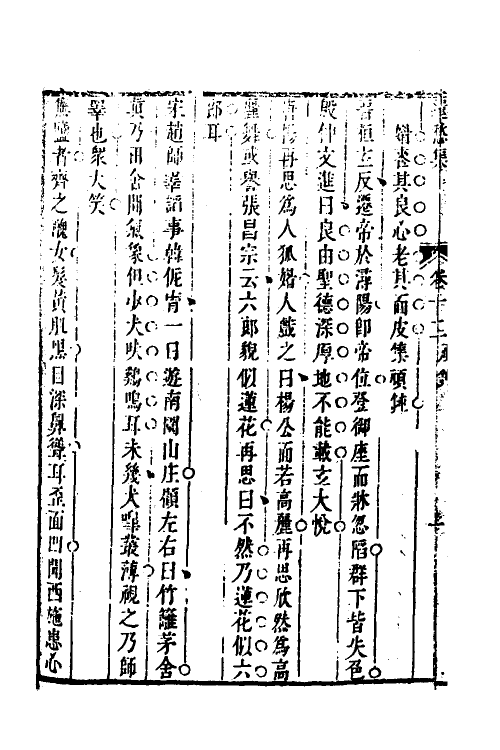 喪其良心老其面皮集頑鈍
晉桓玄反遷帝於潯陽卽帝位登御座而牀忽陷群下皆失色
殷仲文進曰良由聖德深厚地不能載玄大悅
唐楊再思爲人狐媚人戲之曰楊公面若高麗再思欣然爲高
麗舞或譽張昌宗云六郎貌似蓮花再思曰不然乃蓮花似六
郎耳
宋趙師𢍰諂事韓侂胄一日遊南園山庄顧左右曰竹籬茅舍
眞乃田舍間氣象但少犬吠鷄鳴耳未幾犬嘷叢薄視之乃師
𢍰也衆大笑
無鹽者齊之醜女髮黃肌黑目深鼻聳耳歪面凹聞西施患心